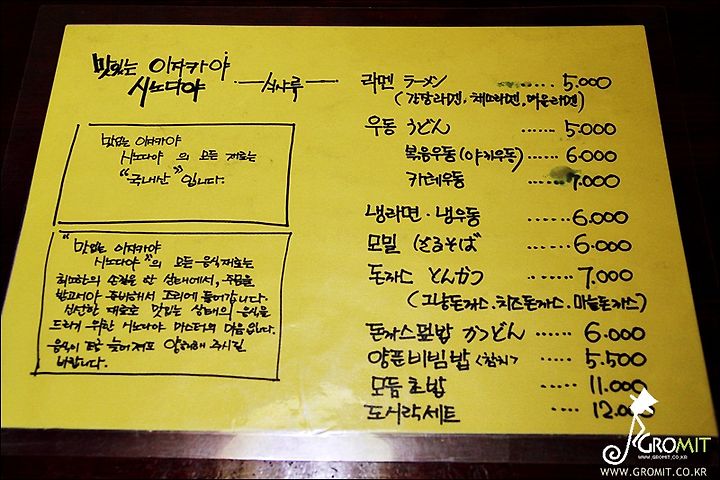 맛있는 이자카야
시노다야 —식사류—
맛있는 이자카야
시노다야의 모든 재료는
"국내산"입니다.
"맛있는 이자카야
시노다야"의 모든 음식재료는
최소한의 손질을 한 상태에서, 주문을
받고서야 준비해서 조리에 들어갑니다.
신선한 재료로 맛있는 상태의 음식을
드리기 위한 시노다야 마스터의 마음입니다.
음식이 조금 늦어져도 양해해 주시길
바랍니다.
라멘 ラーメン ...... 5.000
우동 うどん ...... 5.000
볶음우동(야끼우동) ...... 6.000
카레우동 ...... 7.000
냉라면·냉우동 ...... 6.000
모밀 ざるそば ...... 6.000
돈까스 とんかつ ...... 7.000
(그냥돈까스.치즈돈까스.마늘돈까스)
돈까스덮밥 かつどん ...... 6.000
양푼비빔밥(참치) ..... 5.500
모듬초밥 ..... 11.000
도시락세트 .... 12.000
GROMIT
WWW.GROMIT.CO.KR
WWW.GROMIT.CO.KR